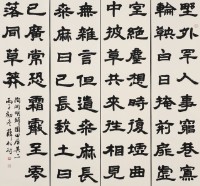 野外罕人事窮巷寡
輪鞅白日掩荊扉虛
室絕塵想時復墟曲
中披草共來往相見
無雜言但道桑麻長
桑麻日已長我土日
已廣常恐霜霰至零
落同草莽
陶淵明歸園田居其二